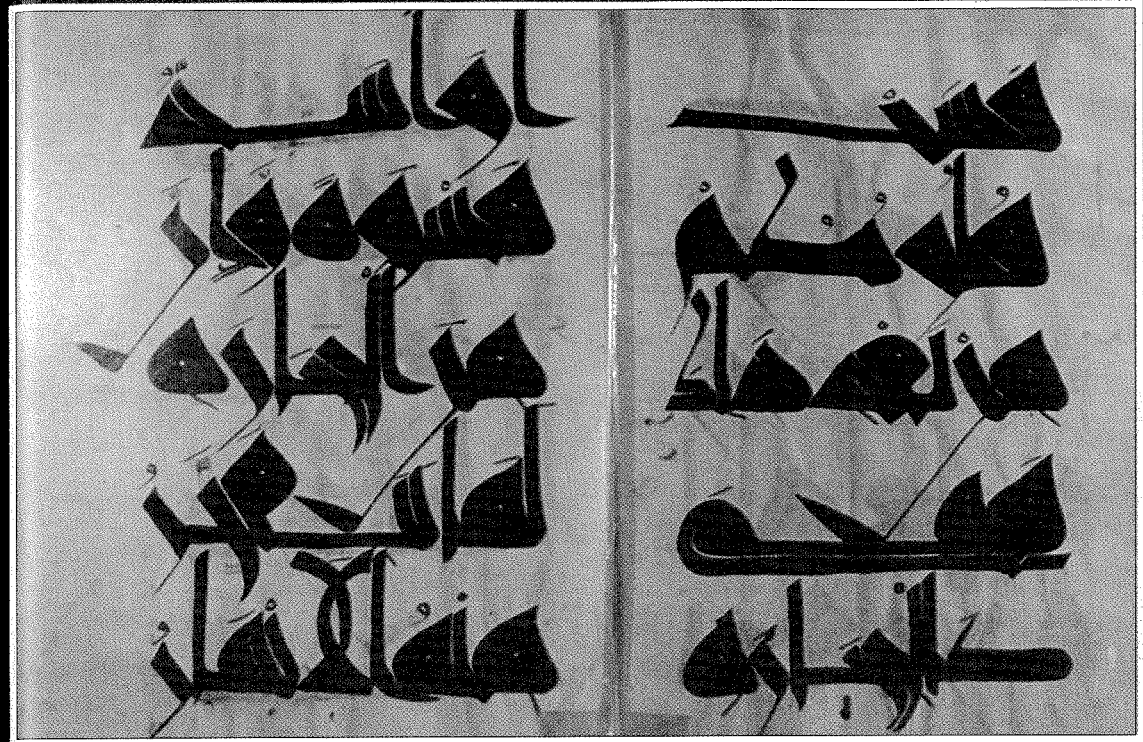 ثم قست
قلوبكم
من بعد ذلك
فهي
كالحجارة
أو أشد
قسوة وإن
من الحجارة
لما يتفجر
منه الأنهار